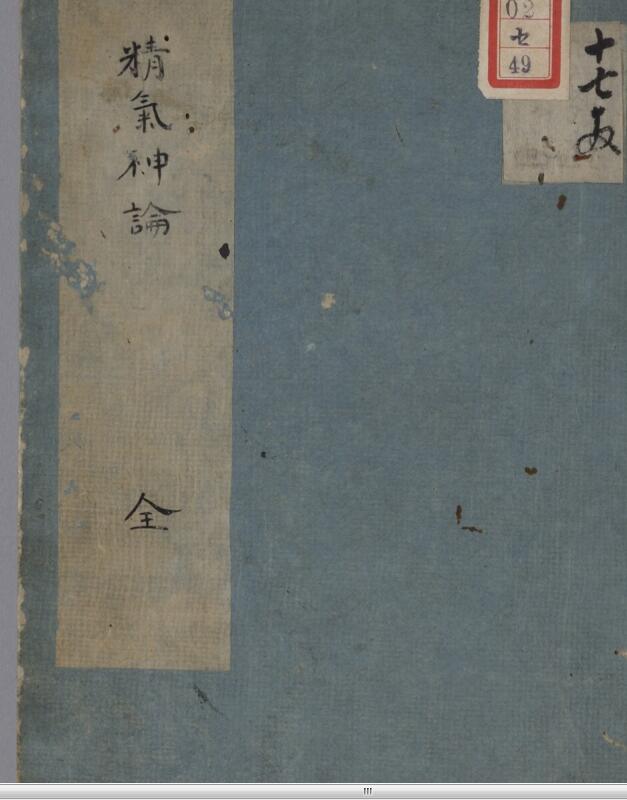 精氣神論
全
02
セ
49
十七